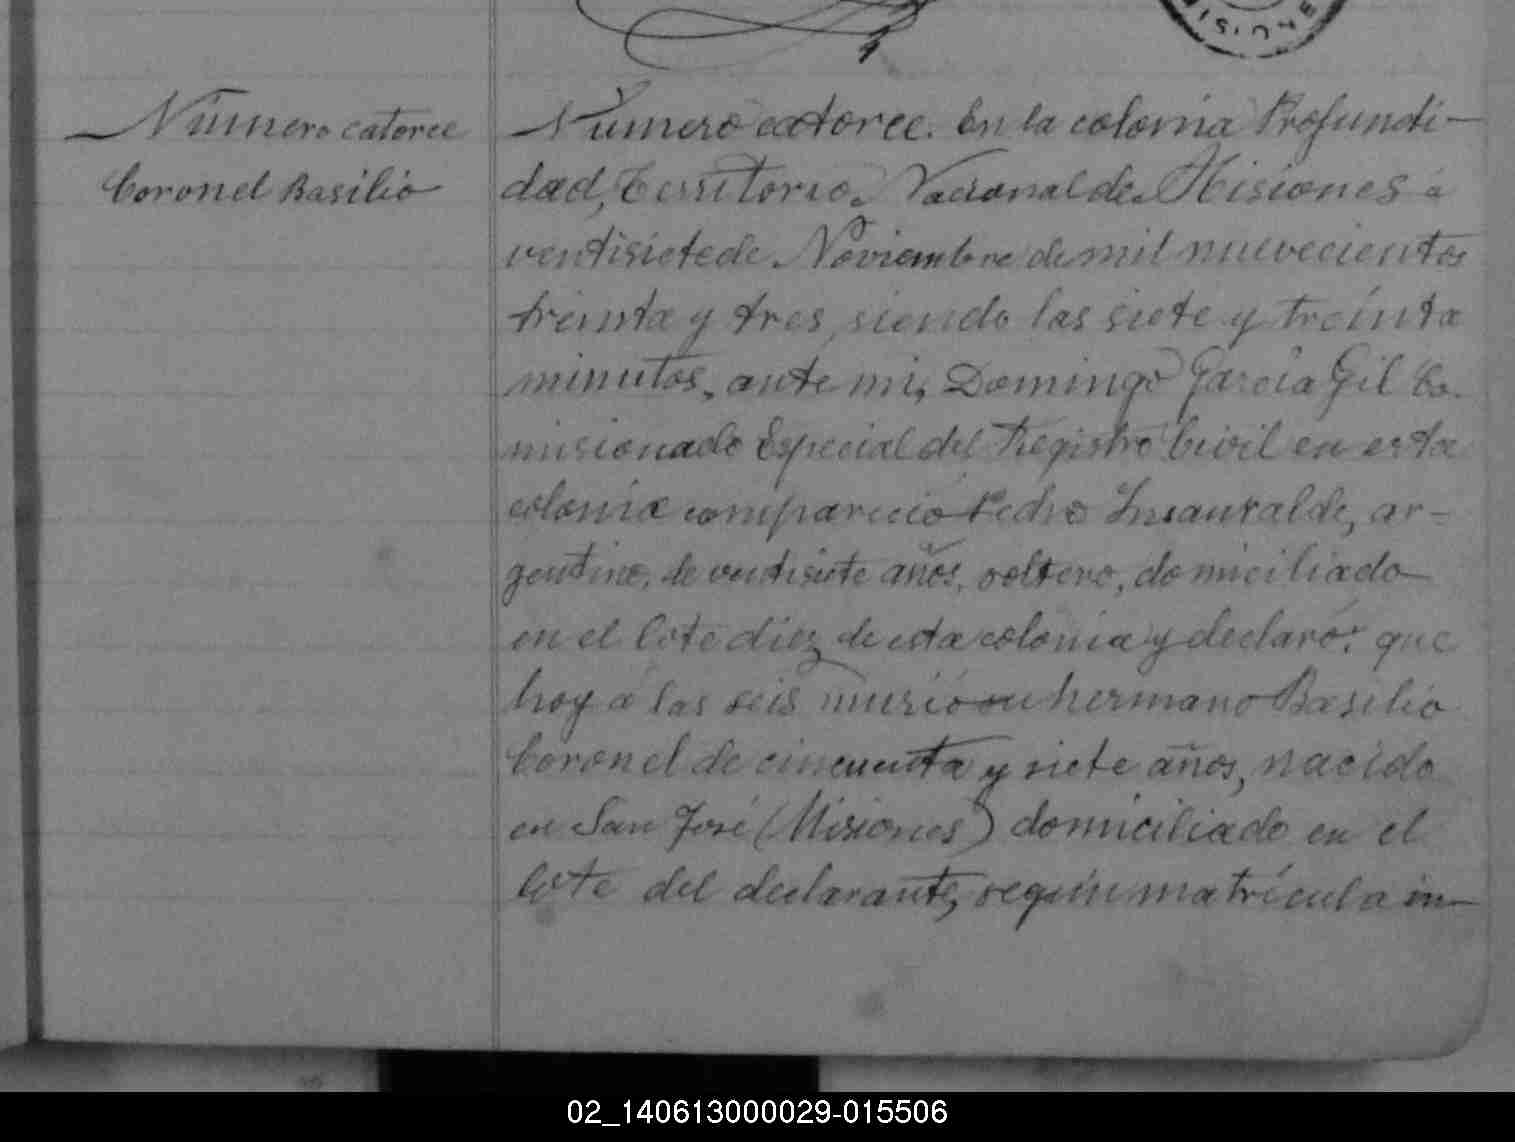 Número catorce
Coronel Basilio
Número catorce. En la colonia Profundi-
dad, Territorio Nacional de Misiones á
ventisiete de Noviembre de mil nuevecientos
treinta y tres, siendo las siete y treinta
minutos, ante mi, Domingo García Gil Co-
misionado Especial del Registro Civil en esta
colonia compareció Pedro Insauralde, ar-
gentino, de ventisiete años, soltero, domiciliado
en el lote diez de esta colonia y declaró: que
hoy á las seis murió su hermano Basilio
Coronel de cincuenta y siete años, nacido
en San José (Misiones) domiciliado en el
lote del declarante, según matrícula in-
02_140613000029-015506